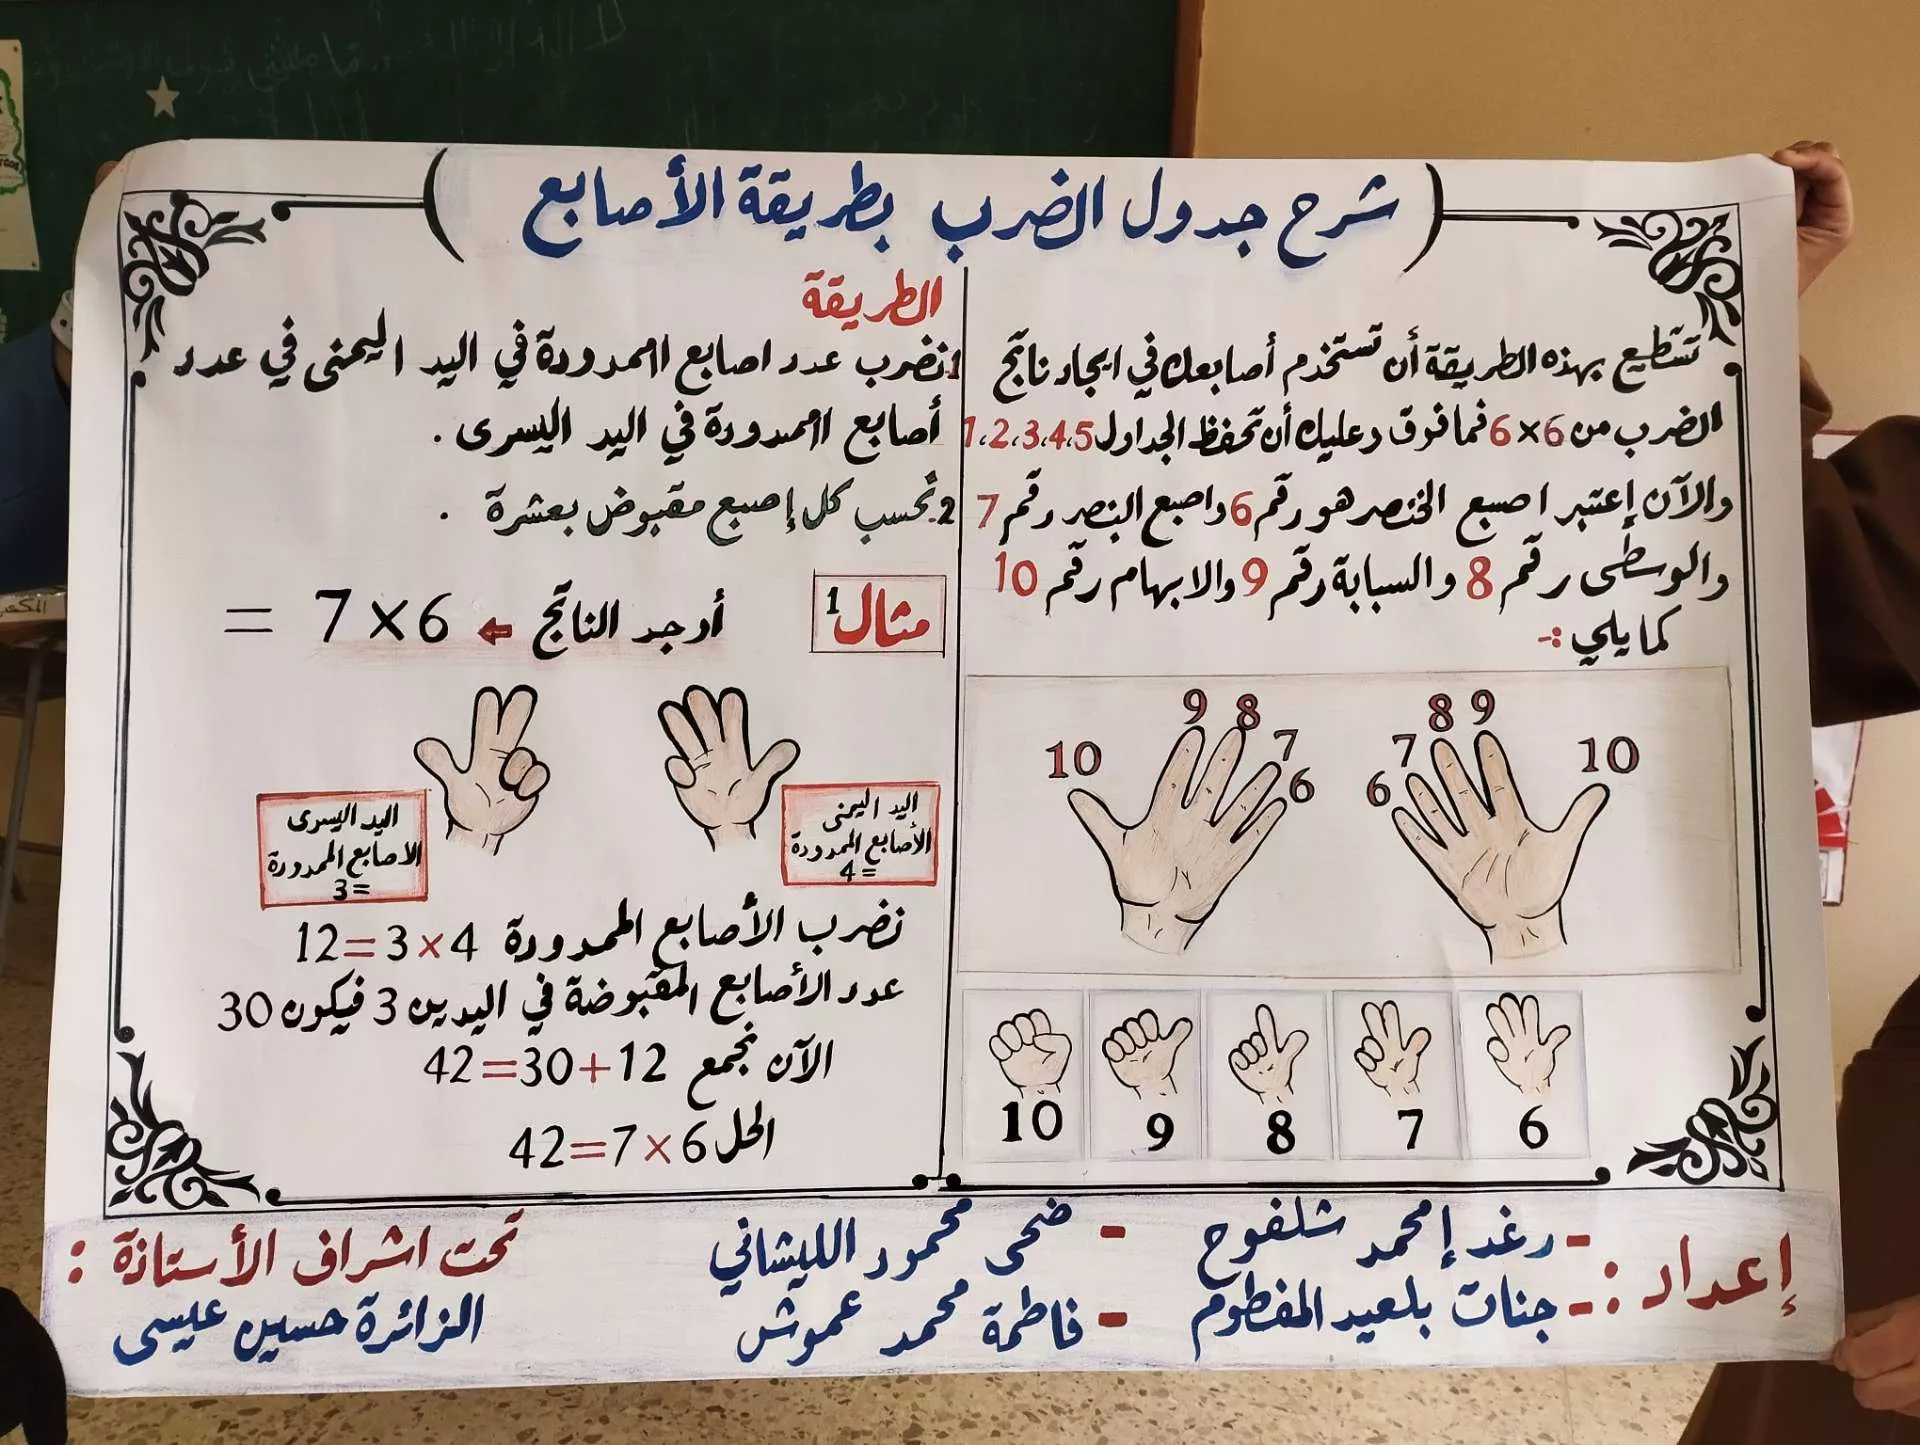 شرح جدول الضرب بطريقة الأصابع
تستطيع بهذه الطريقة أن تستخدم أصابعك في ايجاد ناتج
الضرب من 6×6 فما فوق وعليك أن تحفظ الجداول 1،2،3،4،5
والآن إعتبر اصبع الخنصر هو رقم 6 واصبع البنصر رقم 7
والوسطى رقم 8 والسبابة رقم 9 والابهام رقم 10
كما يلي :-
10 9 8 7 6
6 7 8 9 10
10 9 8 7 6
الطريقة
1. نضرب عدد اصابع الممدودة في اليد اليمنى في عدد
أصابع الممدودة في اليد اليسرى .
2. نحسب كل إصبع مقبوض بعشرة .
مثال 1
أوجد الناتج ← 7×6 =
اليد اليمنى
الأصابع الممدودة
4=
اليد اليسرى
الاصابع الممدودة
3=
نضرب الأصابع الممدودة 12=3×4
عدد الأصابع المقبوضة في اليدين 3 فيكون 30
الآن نجمع 42=30+12
الحل 42=7×6
إعداد :
- رغد إمحمد شلفوح
- جنات بلعيد المفطوم
- ضحى محمود الليشاني
- فاطمة محمد عموش
تحت اشراف الأستاذة :
الزائرة حسين عيسى